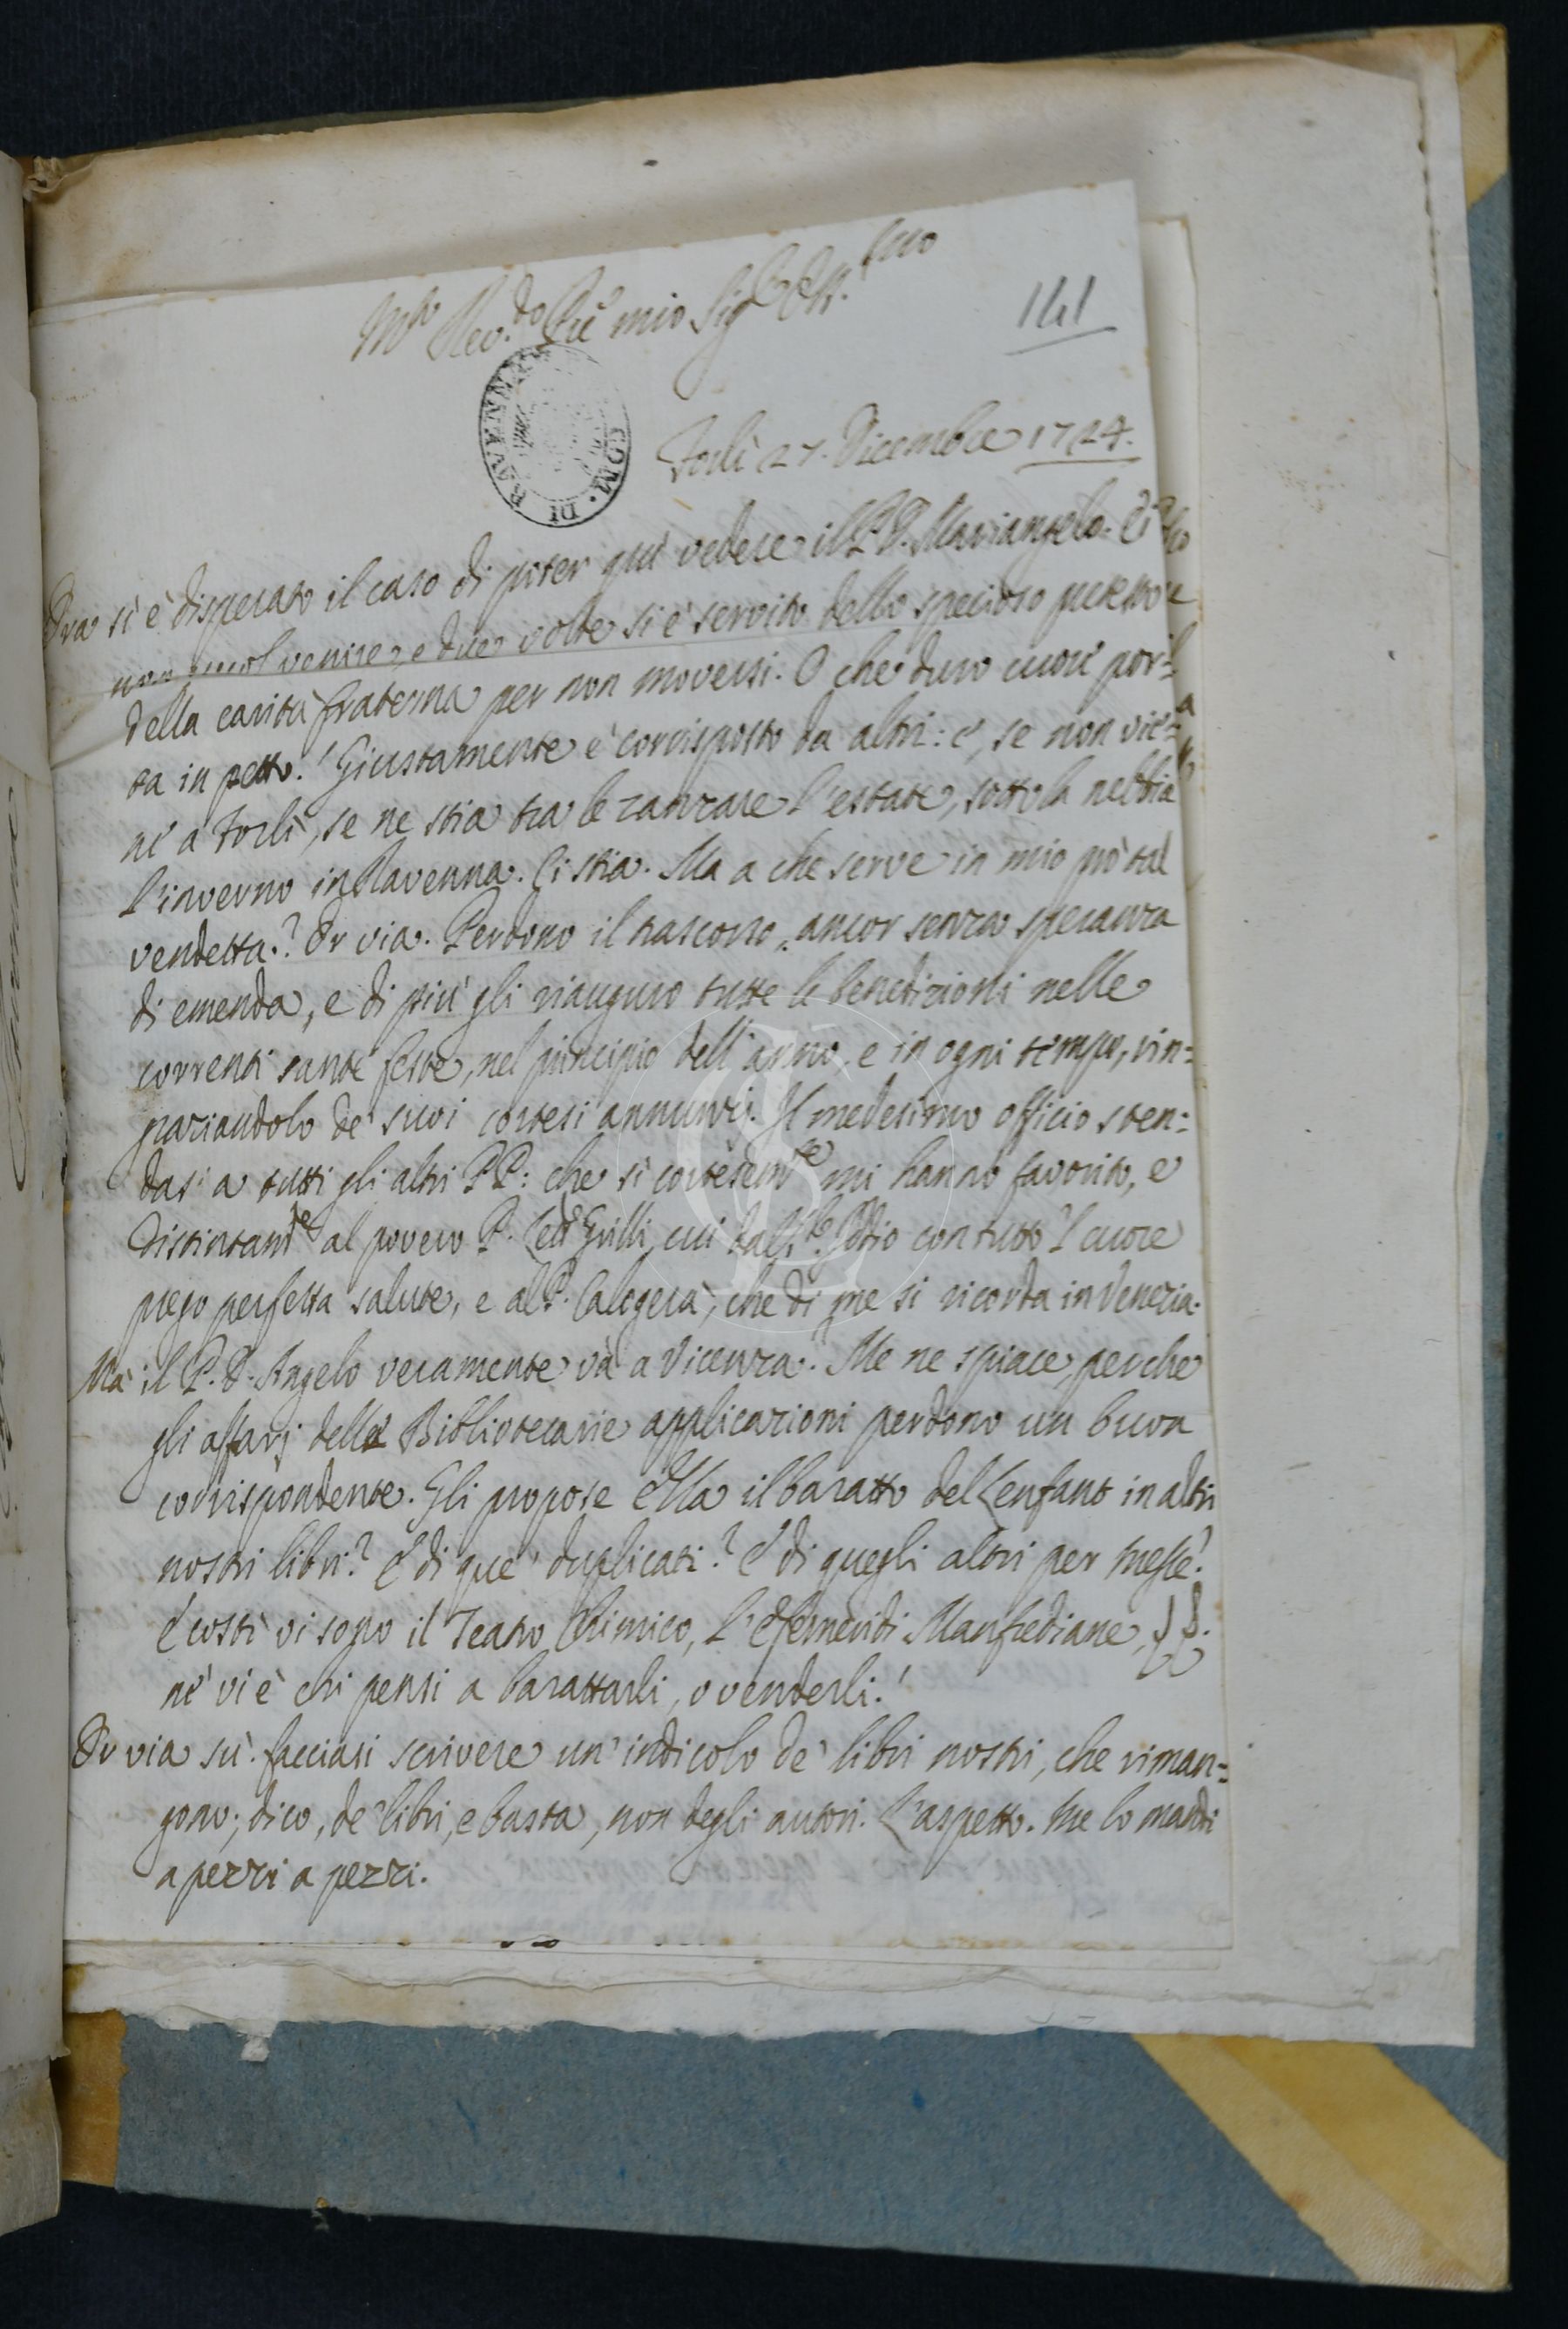 M.to Rev.do P.re mio Sig.r Oss.mo
141
Forlì 27. Dicembre 1724.
COM. DI RAVENNA
Ora sì è disperato il caso di poter quì vedere il P. D. Mariangelo. Ei
non vuol venire, e due volte si è servito dello specioso pretesto
della carità fraterna per non moversi. O che duro cuore por-
ta in petto! Giustamente è corrisposto da altri: e, se non vie-
ne a Forlì, se ne stia tra le zanzare l'estate, sotto la nebbia
l'inverno in Ravenna. Ci stia. Ma a che serve in mio pò tal
vendetta? Or via. Perdono il trascorso, ancor senza speranza
di emenda, e di più gli riauguro tutte le benedizioni nelle
correnti sante feste, nel principio dell'anno, e in ogni tempo, rin=
graziandolo de' suoi cortesi annunzj. Il medesimo officio sten=
dasi a tutti gli altri PP: che sì cortesem.te mi hanno favorito, e
distintam.te al povero P. Grilli, cui dall' Iddio con tutto 'l cuore
prego perfetta salute, e al P. Calogerà, che di me si ricorda in Venezia.
Ma il P. D. Angelo veramente và a Vicenza? Me ne spiace, perche
gli affarj delle Bibliotecarie applicazioni perdono un buon
corrispondente. Gli propose Ella il baratto del Lenfant in altri
nostri libri? E di que' duplicati? E di quegli altri per messe?
E costì vi sono il Teatro Chimico, l'Efemeridi Manfrediane,
nè vi è chi pensi a barattarli, o venderli!
Or via sù. facciasi scrivere un' indicolo de' libri nostri, che riman=
gono; dico, de' libri, e basta, non degli autori. L'aspetto. Me lo mandi
a pezzi a pezzi.